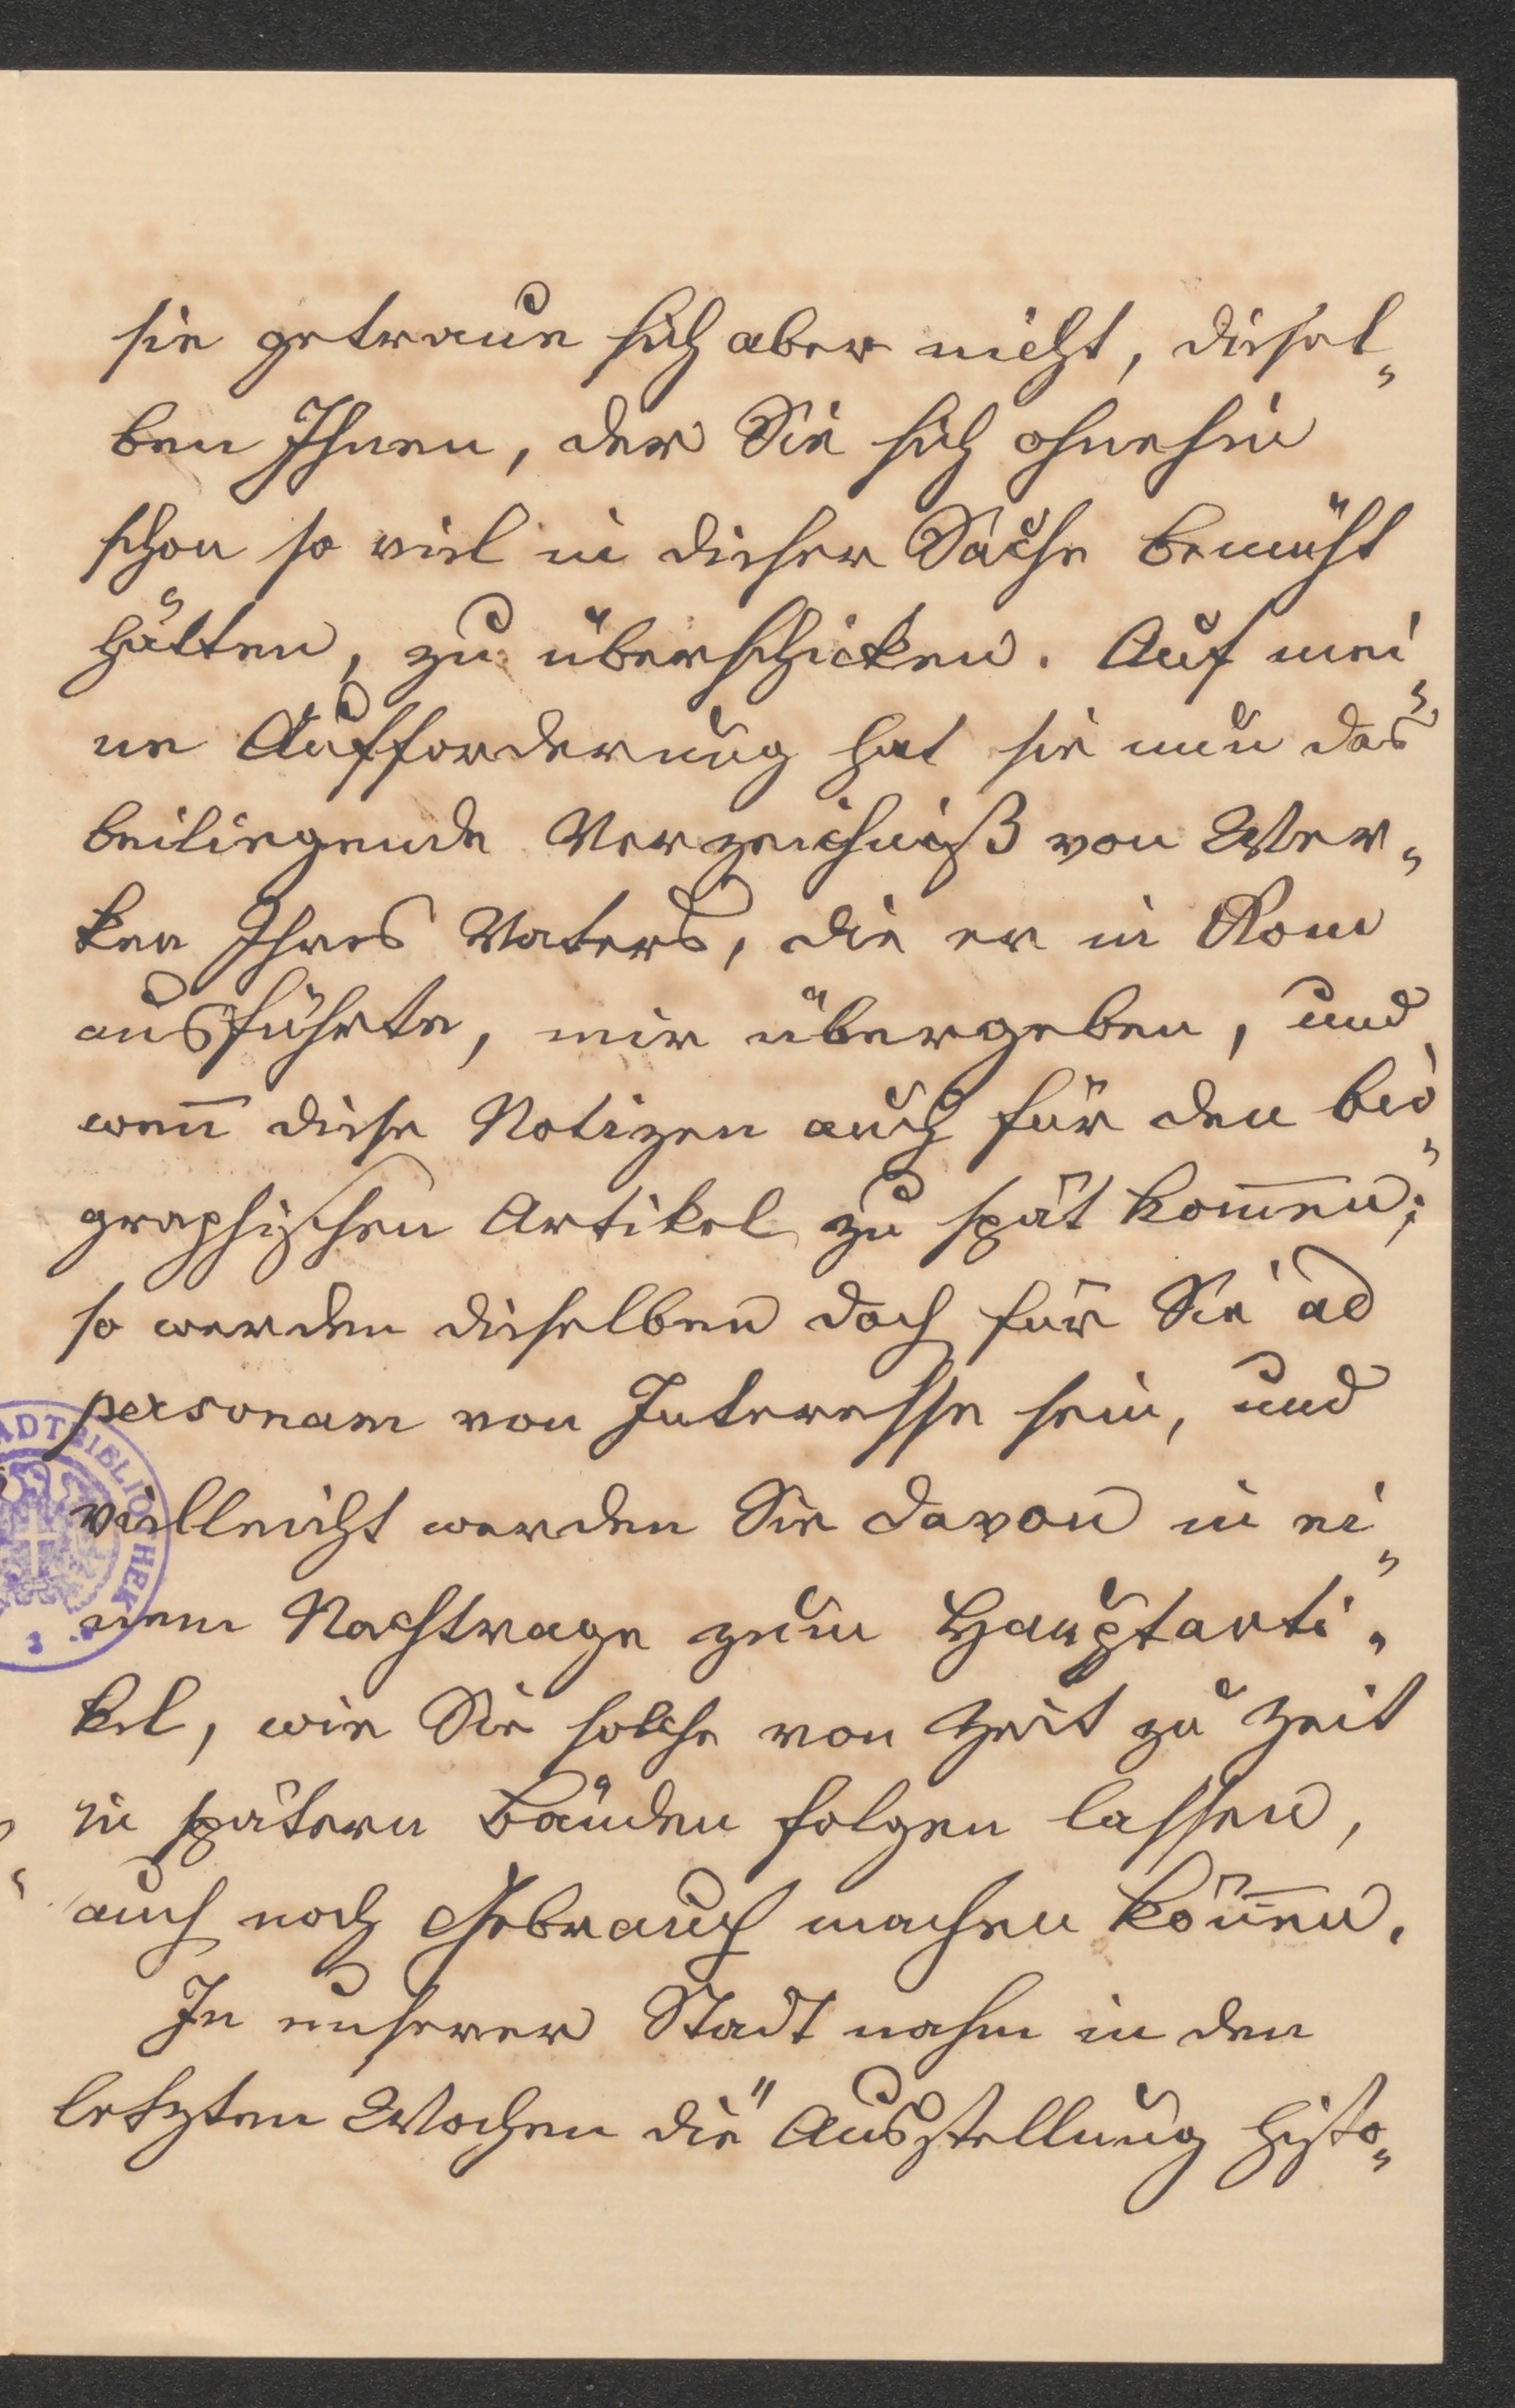 sie getraue sich aber nicht, diesel„
ben Ihnen, der Sie sich ohnehin
schon so viel in dieser Sache bemüht
hätten, zu überschicken. Auf mei„
ne Aufforderung hat sie nun das
beiliegende Verzeichniß von Wer„
ken Ihres Vaters, die er in Rom
ausführte, mir übergeben, und
wen̅ diese Notizen auch für den bio„
graphischen Artikel zu spät kom̅en;
so werden dieselben doch für Sie ad
personam von Interesse sein, und
vielleicht werden Sie davon in ei„
nem Nachtrage zum Hauptarti„
kel, wie Sie solche von Zeit zu Zeit
in spätern Bänden folgen lassen,
auch noch Gebrauch machen kön̅en.
In unserer Stadt nahm in den
letzten Wochen die "Ausstellung histo„
ADTBIBLIOTHEK